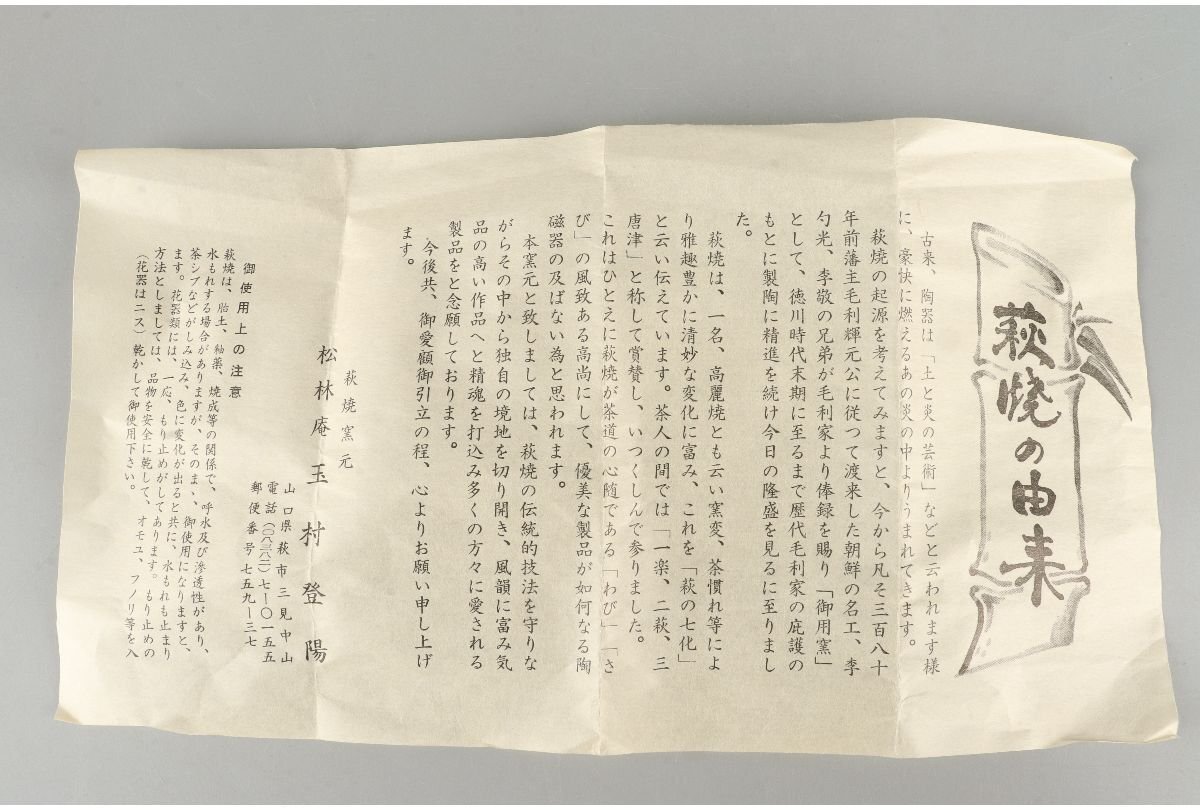 萩焼の由来
古来、陶器は「土と炎の芸術」などと云われます様
に、豪快に燃えるあの炎の中よりうまれてきます。
萩焼の起源を考えてみますと、今から凡そ三百八十
年前藩主毛利輝元公に従つて渡来した朝鮮の名工、李
勺光、李敬の兄弟が毛利家より俸録を賜り「御用窯」
として、徳川時代末期に至るまで歴代毛利家の庇護の
もとに製陶に精進を続け今日の隆盛を見るに至りまし
た。
萩焼は、一名、高麗焼とも云い窯変、茶慣れ等によ
り雅趣豊かに清妙な変化に富み、これを「萩の七化」
と云い伝えています。茶人の間では「一楽、二萩、三
唐津」と称して賞賛し、いつくしんで参りました。
これはひとえに萩焼が茶道の心随である「わび」「さ
び」の風致ある高尚にして、優美な製品が如何なる陶
磁器の及ばない為と思われます。
本窯元と致しましては、萩焼の伝統的技法を守りな
がらその中から独自の境地を切り開き、風韻に富み気
品の高い作品へと精魂を打込み多くの方々に愛される
製品をと念願しております。
今後共、御愛顧御引立の程、心よりお願い申し上げ
ます。
萩焼窯元
松林庵 玉村登陽
山口県萩市三見中山
電話(〇八三八二)七ー〇一五五
郵便番号七五九ー三七
御使用上の注意
萩焼は、胎土、釉薬、焼成等の関係で、呼水及び滲透性があり、
水もれする場合がありますが、そのまゝ、御使用になりますと、
茶シブなどがしみ込み、色に変化が出ると共に、水もれも止まり
ます。花器類には、一応、もり止めがしてあります。もり止めの
方法としましては、品物を安全に乾して、オモユ、フノリ等を入
(花器はニス)乾かして御使用下さい。